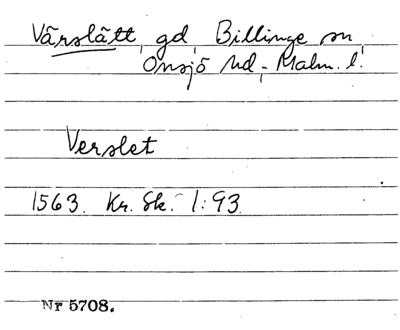 Värslätt, gd, Billinge sn,
Onsjö hd, Malm. l.
Verslet
1563. Kr. Sk. 1:93
Nr 5708.